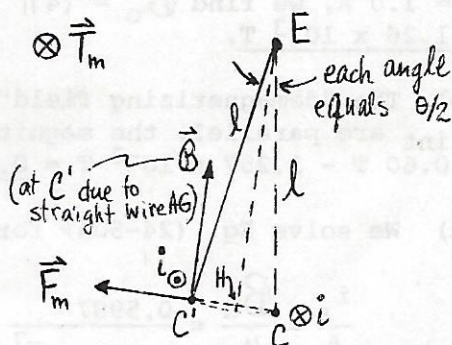 ⊗ T⃗m
E
each angle
equals θ/2
l
l
B⃗
(at C' due to
straight wire AG)
i ⊙
F⃗m
H
C'
C
⊗ i